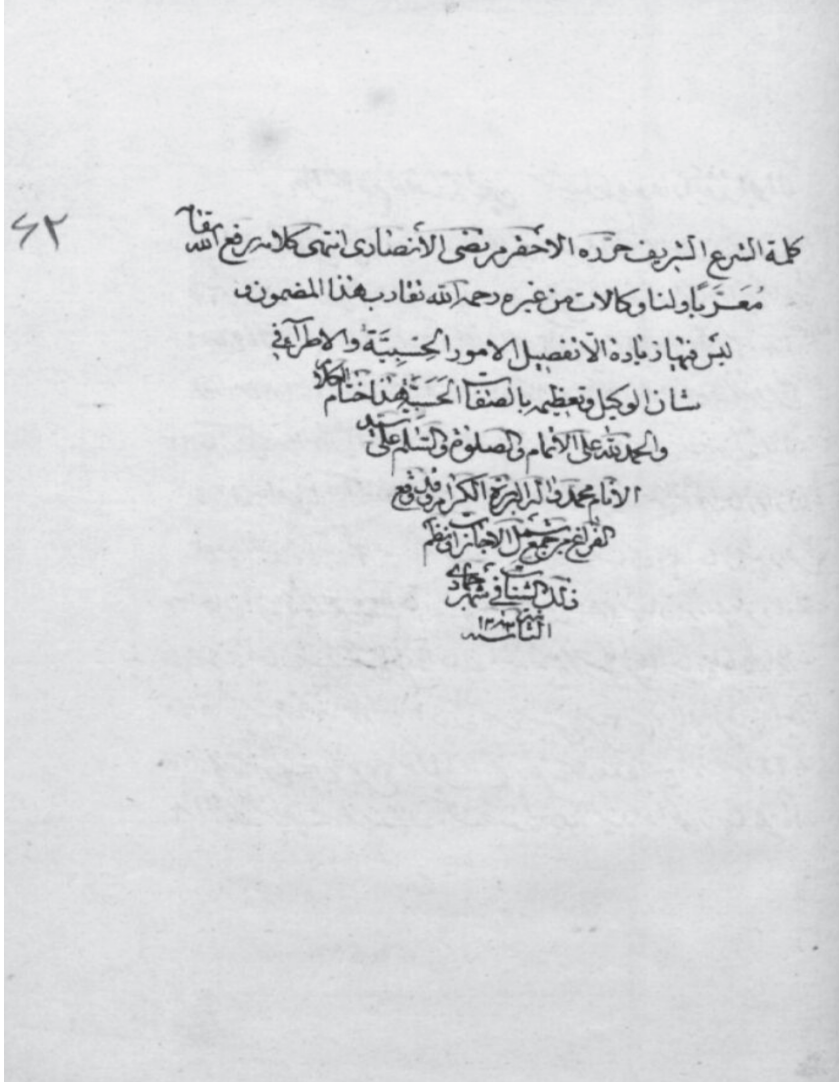 ۶۲
كلمة الشرع الشريف حرّده الاحقر مرتضى الأنصارى انتهى كلامه رفع الله مقامه
مُعَرَّبًا ولنا وكالات من غيره رحمه الله تقارب هذا المضمون و
ليس فيها زيادة الّا تفصيل الامور الحِسبِيَّة والاطراء فى
شان الوكيل وتعظيمه بالصفات الحَسَنَة هذا ختام الكلام
والحمد لله على الاتمام والصلوة والسّلم على سيّد
الانام محمد واله البررة الكرام وقد وقع
الفراغ من جمع شمل الاجازات ونظم
ذلك الشتات فى شهر جمادى
الثانية